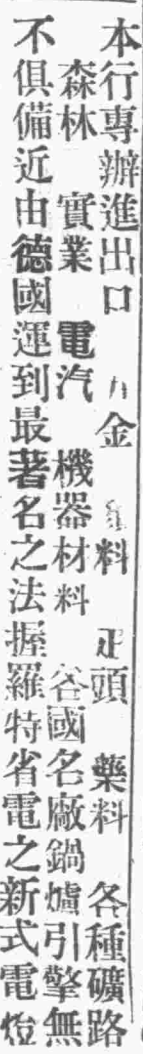 本行專辦進出口 五金 顏料 疋頭 藥料 各種礦路
森林 實業 電汽 機器材料 各國名廠鍋爐引擎無
不俱備近由德國運到最著名之法握羅特省電之新式電燈